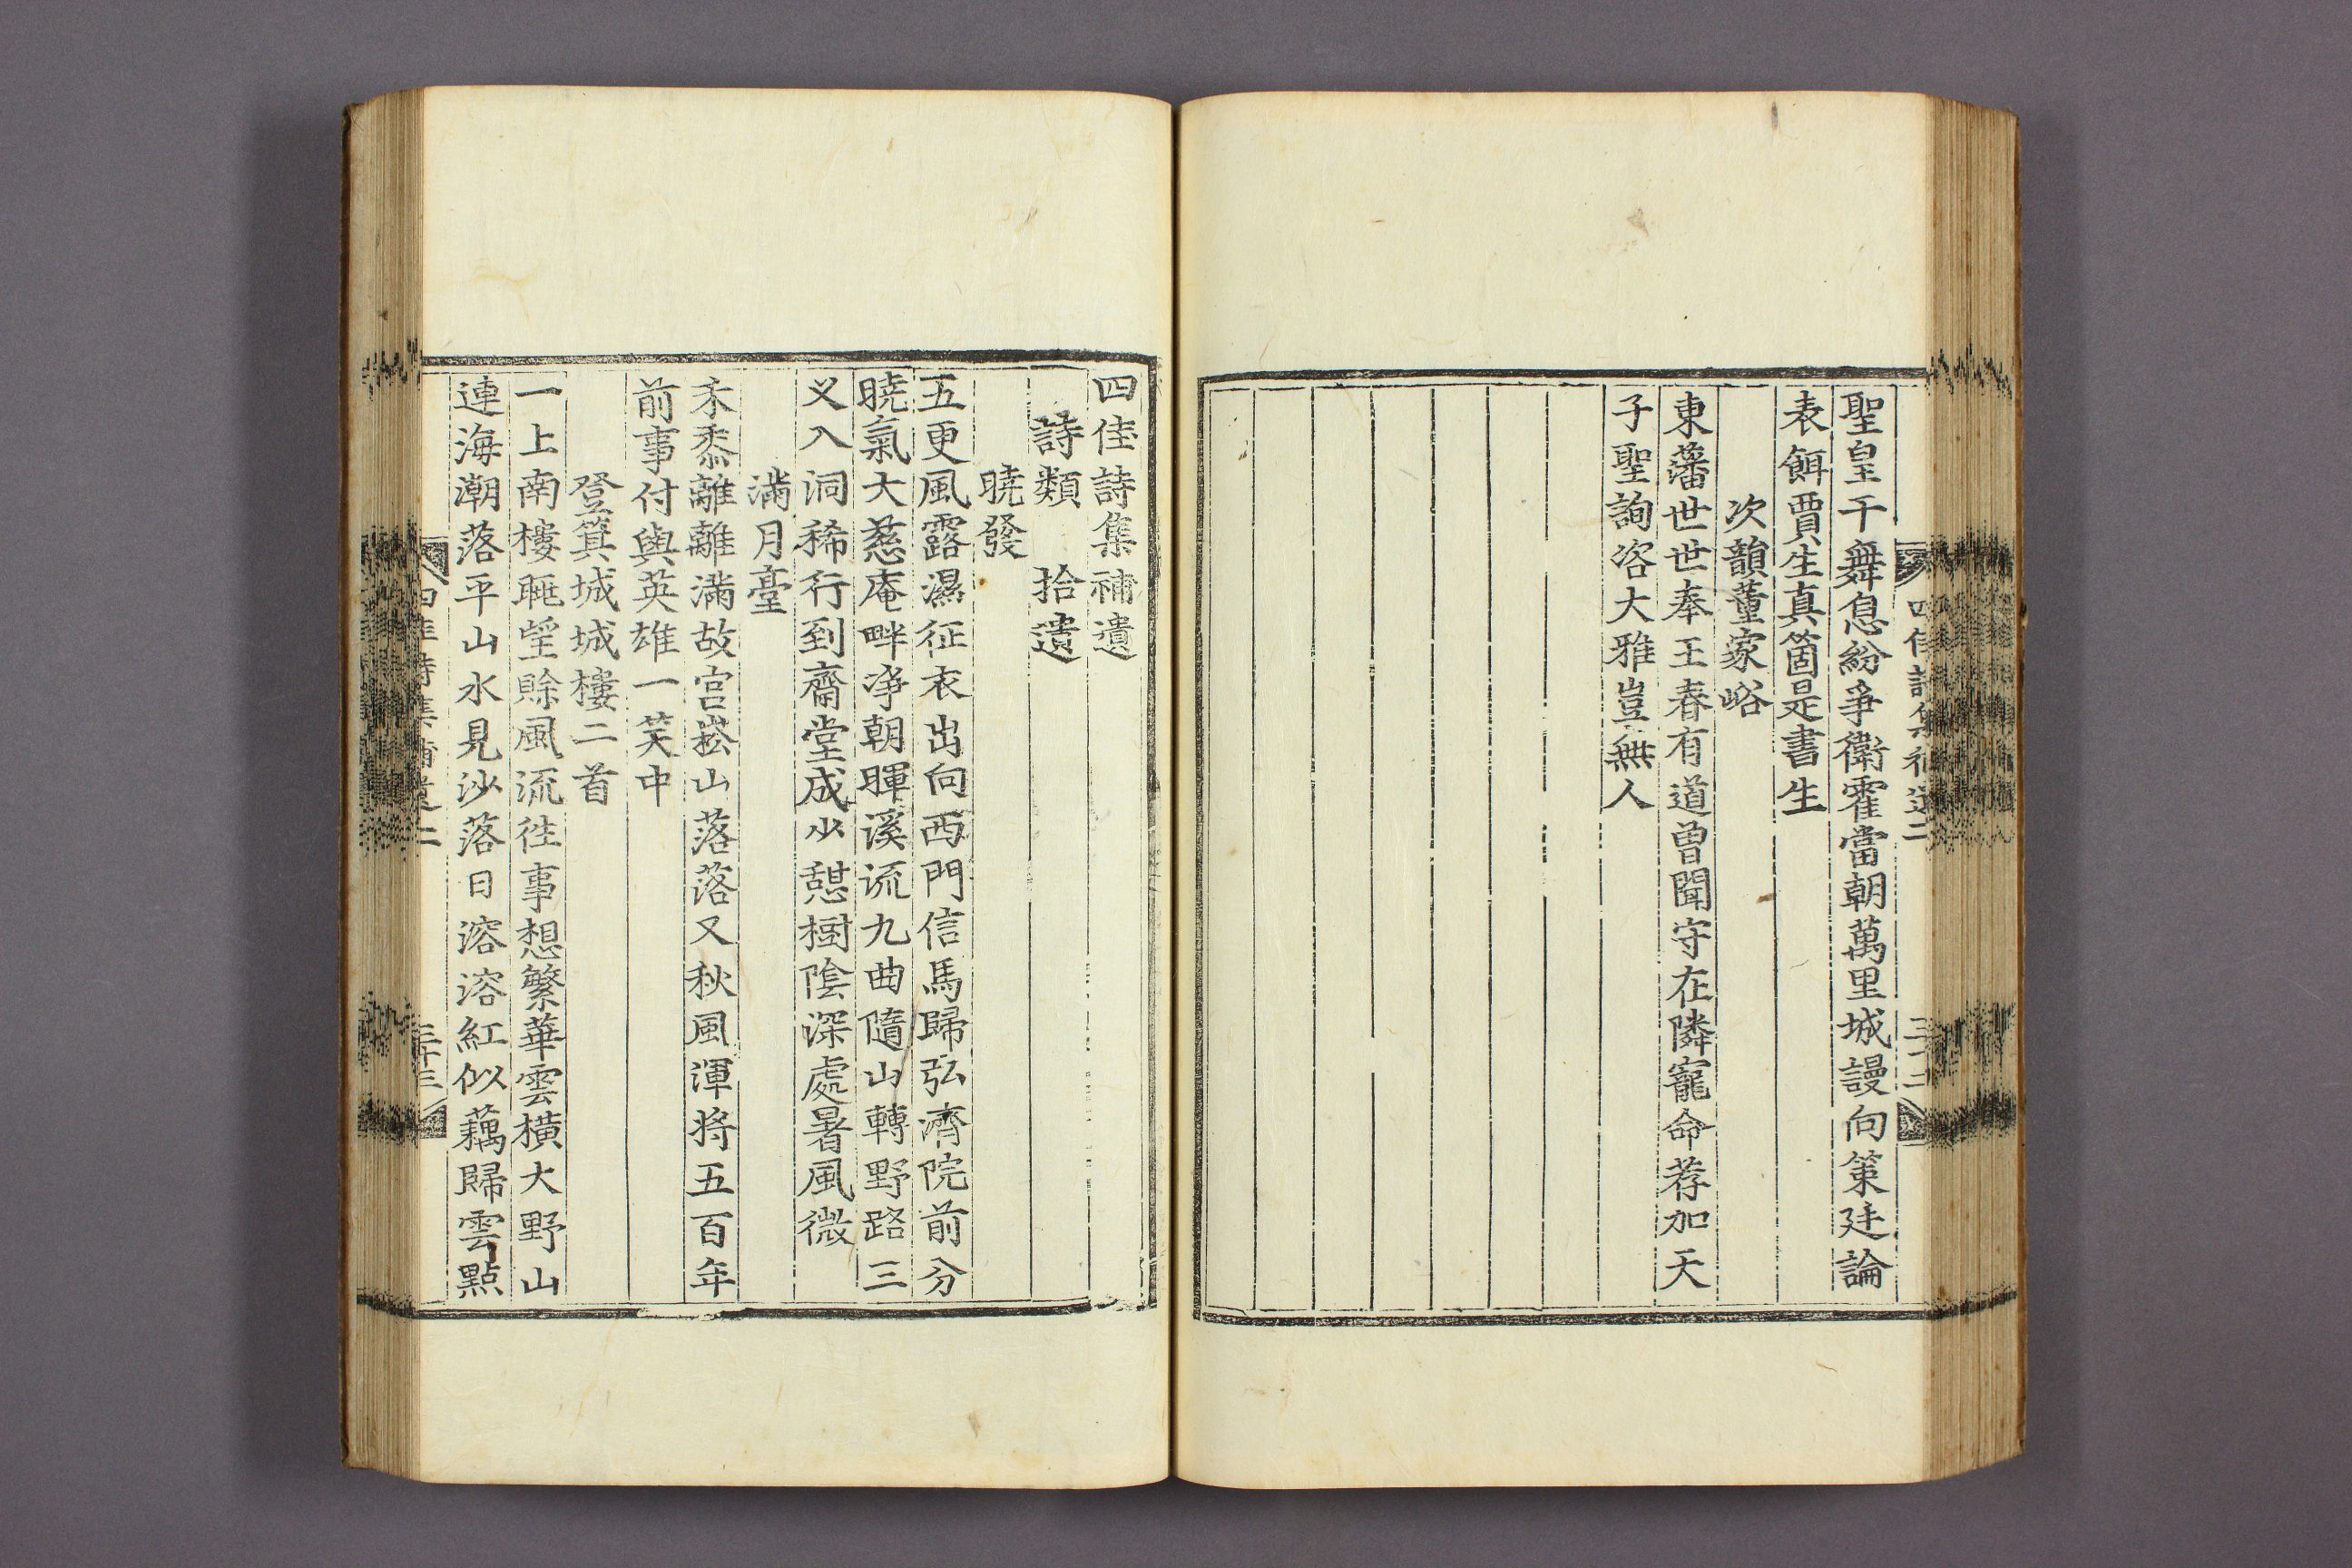 聖皇干舞息紛爭衛霍當朝萬里城謾向策廷論
表餌賈生真箇是書生
次韻董家峪
東藩世世奉王春有道曾聞守在隣寵命荐加天
子聖詢咨大雅豈無人
四佳詩集補遺
詩類 拾遺
曉發
五更風露濕征衣出向西門信馬歸弘濟院前分
曉氣大慈庵畔净朝暉溪流九曲隨山轉野路三
义入洞稀行到齋堂成少憇樹陰深處暑風微
滿月臺
禾黍離離滿故宮崧山落落又秋風渾將五百年
前事付與英雄一笑中
登箕城城樓二首
一上南樓眺望賖風流徃事想繁華雲橫大野山
連海潮落平山水見沙落日溶溶紅似藕歸雲點
四佳詩集補遺二
三十三